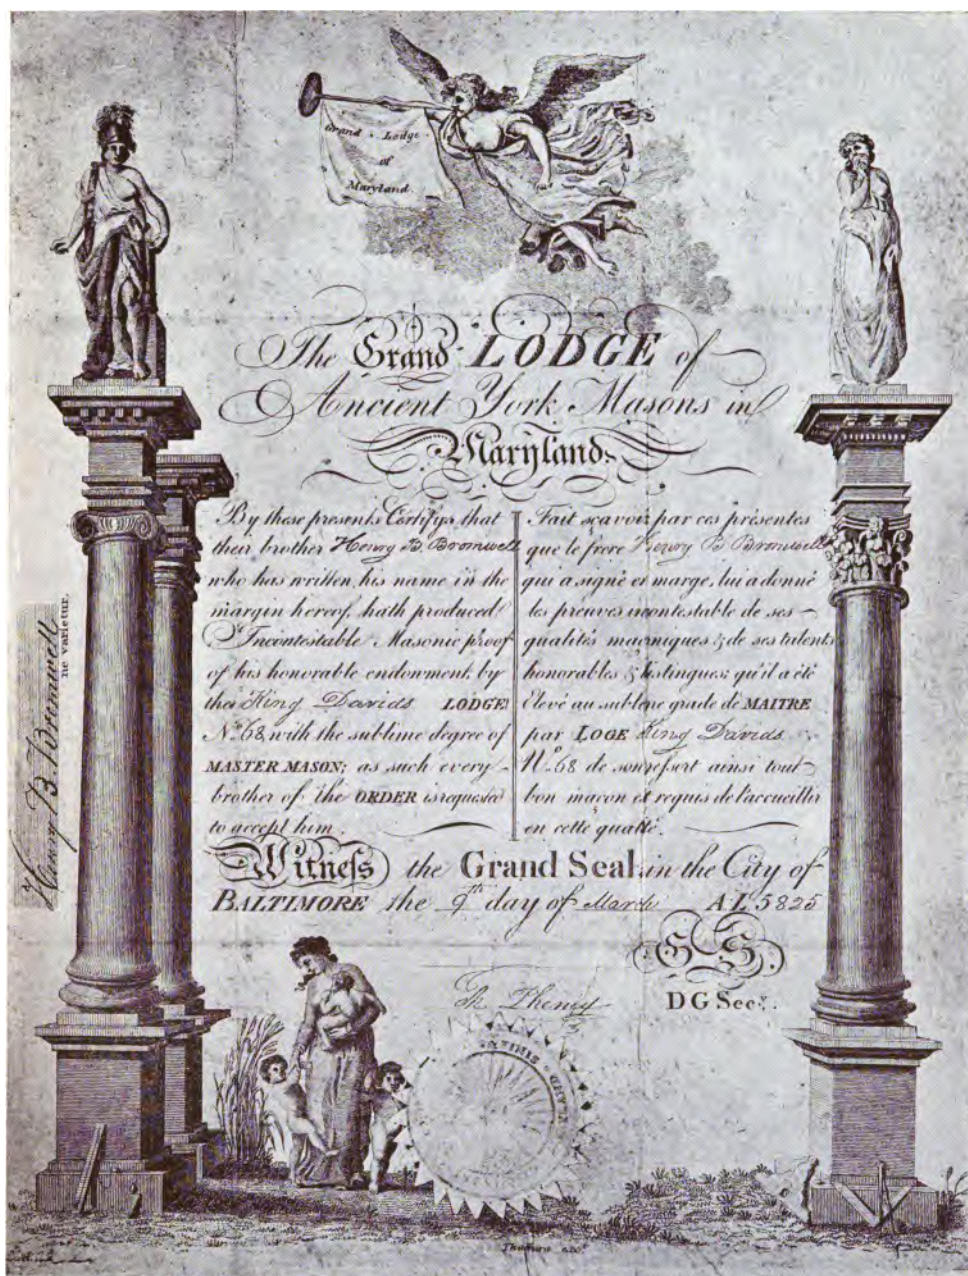 Grand Lodge
of
Maryland.
The Grand LODGE of
Ancient York Masons in
Maryland
By these presents Certifys that
their brother Henry B Bromwell
who has written his name in the
margin hereof, hath produced
Incontestable Masonic proof
of his honorable endowment by
the King Davids LODGE
No. 68 with the sublime degree of
MASTER MASON; as such every
brother of the ORDER is requested
to accept him.
Fait sçavoir par ces présentes
que le frere Henry B Bromwell
qui a signé et marge, lui a donné
les preuves incontestable de ses
qualités maçniques & de ses talents
honorables & distingues; qu'il a été
élevé au sublene grade de MAITRE
par LOGE King Davids
No. 68 de ainsi tout
bon maçon et requis de l'accueillir
en cette qualté.
Witneſs the Grand Seal in the City of
BALTIMORE the 9th day of March A L 5825
GS
DG Secy.
Henry B. Bromwell
ne varietur.